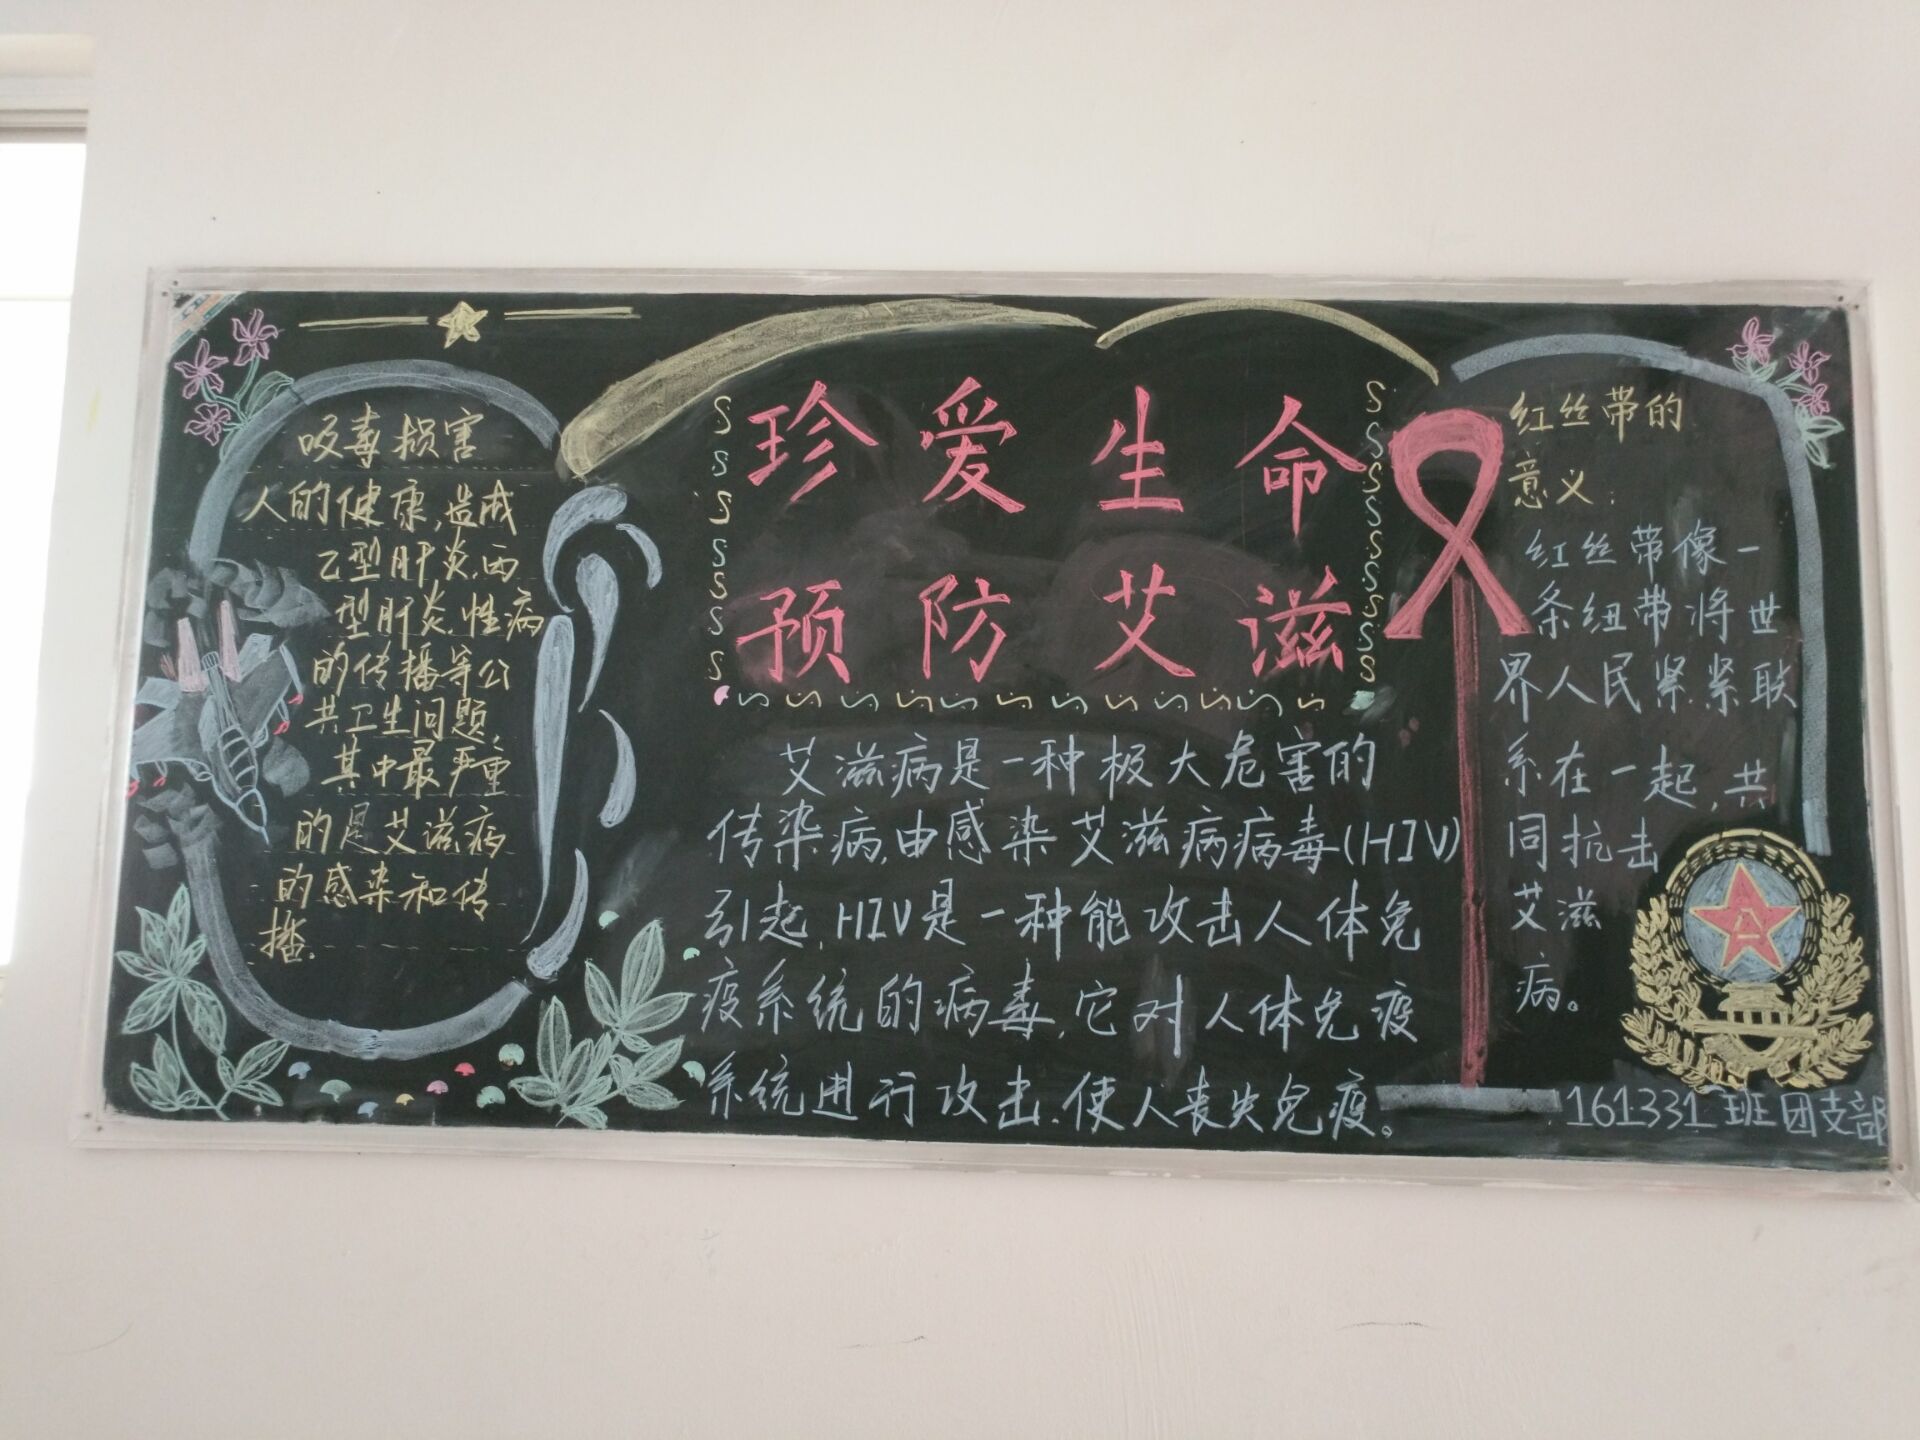 吸毒损害
人的健康,造成
乙型肝炎.丙
型肝炎.性病
的传播等公
共卫生问题,
其中最严重
的是艾滋病
的感染和传
播.
珍爱生命
预防艾滋
艾滋病是一种极大危害的
传染病,由感染艾滋病病毒(HIV)
引起,HIV是一种能攻击人体免
疫系统的病毒,它对人体免疫
系统进行攻击,使人丧失免疫。
红丝带的
意义:
红丝带像一
条纽带将世
界人民紧紧联
系在一起,共
同抗击
艾滋
病。
八一
161331班团支部